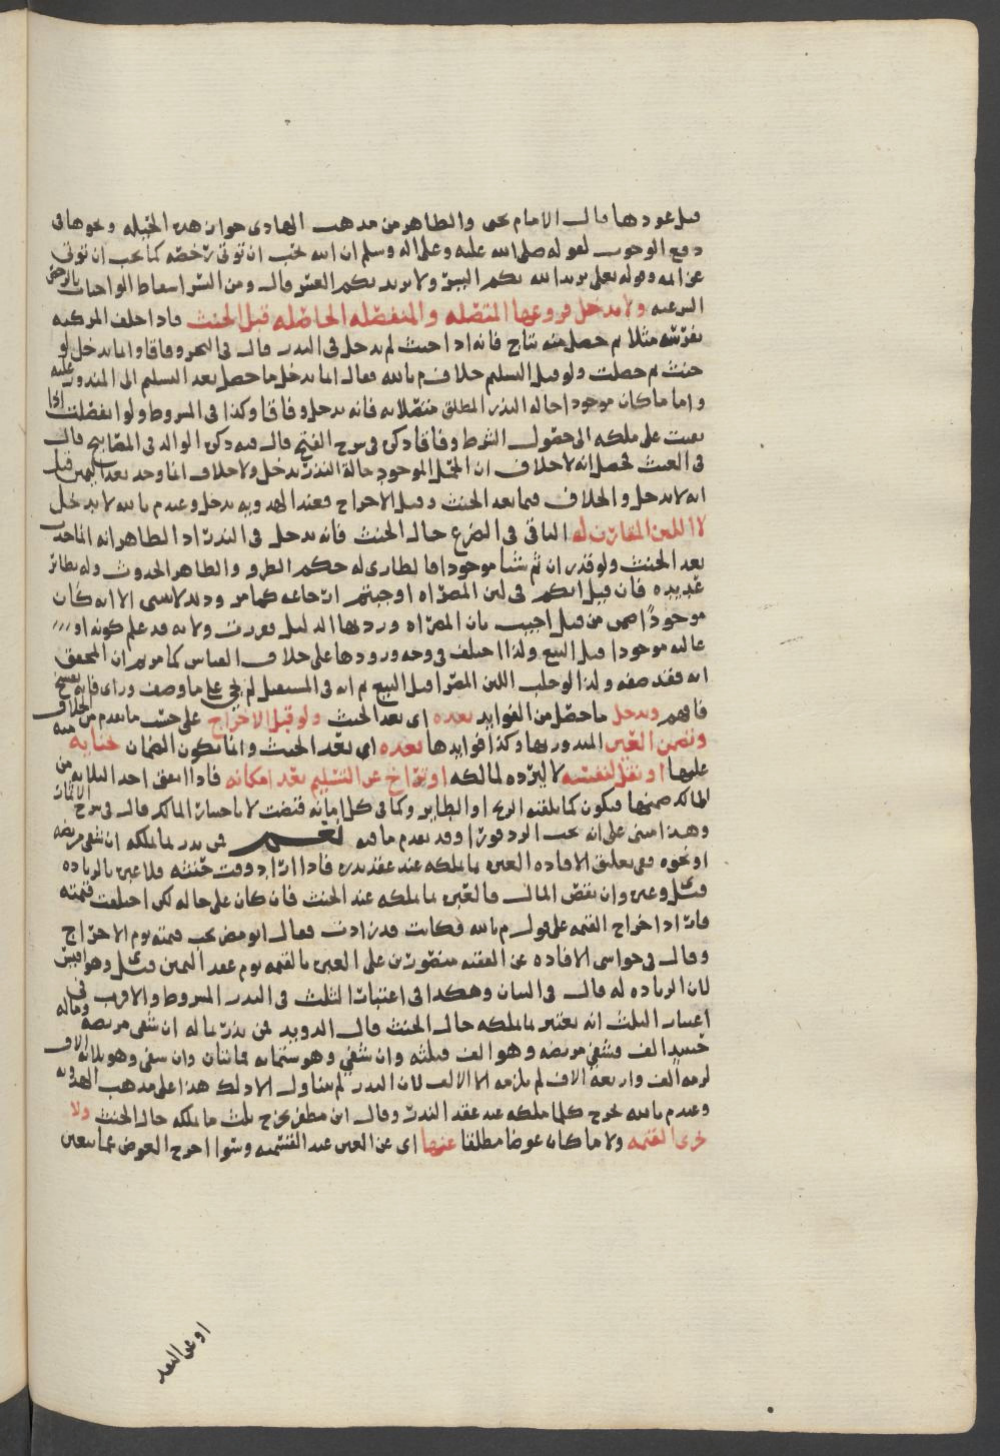 قبل عودها قال الامام يحيى والظاهر من مذهب الهادي جواز هذه الحيله ونحوها في
دفع الوجوب لقوله صلى الله عليه وعلى اله وسلم ان الله يحب ان توتى رخصه كما يحب ان توتى
عزائمه وقوله تعلى يريد الله بكم اليسر ولا يريد بكم العسر قال ومن اليسر اسقاط الواجبات بالرخص
الشرعيه ولا يدخل فروعها المتصله والمنفصله الحاصله قبل الحنث فاذا حلف المركبه
بفرسه مثلا ثم حصل منه نتاج فانه اذا حنث لم يدخل في النذر قال في البحر وفاقا وانما يدخل لو
حنث ثم حصلت ولو قبل التسليم خلاف م بالله فقال انما يدخل ما حصل بعد التسليم الى المنذور عليه
واما ما كان موجودا حاله النذر المطلق متصلا به فانه يدخل وفاقا وكذا في المشروط ولو انفصلت اذا
بقيت على ملكه الى حصول الشرط وفاقا ذكره في شرح الفتح قال فيه ذكره الوالد في المصابيح قال
في الغيث فحصل انه لا خلاف ان الحمل الموجود حالة النذر يدخل ولا خلاف انما وجد بعد اليمين قبل
انه لا يدخل والخلاف فيما بعد الحنث وقبل الاخراج فعند الهدويه يدخل وعند م بالله لا يدخل
لا اللبن المقارن له الباقي في الضرع حال الحنث فانه يدخل في النذر اذ الظاهر انه انما حدث
بعد الحنث ولو قدر ان ثم شيا موجودا فالطاري له حكم الطرو والظاهر الحدوث وله نظائر
عديده فان قيل انكم في لبن المصراه اوجبتم ارجاعه كما مر وذلك لا الا انه كان
موجودًا من قبل اجيب بان المصراه ورد بها الدليل فقررت ولانه قد علم كونه او
غالبه موجودا قبل البيع ولذا اختلف في وجه ورودها على خلاف القياس كما مر ثم ان المحقق
انه فقد صفه ولذا لو حلب اللبن المصرا قبل البيع ثم انه في المستقبل لم يجي على ما وصف وراى فانه يفسخ
فافهم ويدخل ما حصل من الفوايد بعده اي بعد الحنث ولو قبل الاخراج على حسب ما تقدم من الخلاف
وتضمن العين المنذور بها وكذا فوايدها بعده اي بعد الحنث وانما يكون الضمان جنايه منه
عليها او نقل لنفسه لا ليرده لمالكه او تراخ عن التسليم بعد امكانه فاذا اتفق احد الثلاثه من
المالك ضمنها فيكون كما يلقيه الريح او الطاير وكما في كل امانه قبضت لا باختيار المالك قال في شرح الاثمار
وهذا مبني على انه يجب الرد فورا وقد تقدم ما فيه نعم من نذر بما يملكه ان شفي مريضه
او نحوه ففي تعليق الافاده العبره بما يملكه عند عقد نذره فاذا ازاد وقت حنثه فلا عبره بالزياده
قيل وعبره وان نقص المال فالعبره ما يملكه عند الحنث فان كان على حاله لكن اختلفت قيمته
فان اراد اخراج القيمه على قول م بالله فكانت قد زادت فقال ابو مضر يجب قيمته يوم الاخراج
وقال في حواشي الافاده عن الفقيه منصورين على العبره بالقيمه يوم عقد اليمين قيل وهو اقيس
لان الزياده له قال في البيان وهكذا في اعتبار الثلث في النذر المشروط والاقرب في
اعتبار الثلث انه يعتبر بما يملكه حال الحنث قال الدويد لمن نذر بماله ان شفي مريضه وماله
حينئذ الف فشفي مريضه وهو الف فثلثه وان شفي وهو ستمايه فمائتان وان شفي وهو ثلاثه الاف
لزمه الف واربعه الاف لم يلزمه الا الالف لان النذر لم يتناول الا ذلك هذا على مذهب الهدويه
وعند م بالله يخرج كلما ملكه عند عقد النذر وقال ابن مظفر يخرج ثلث ما يملكه حال الحنث ولا
تجزي القيمه ولا ما كان عوضا مطلقا عنها اي عن العين عند القسمه وسوا اخرج العوض عما تعين
او عن النقد